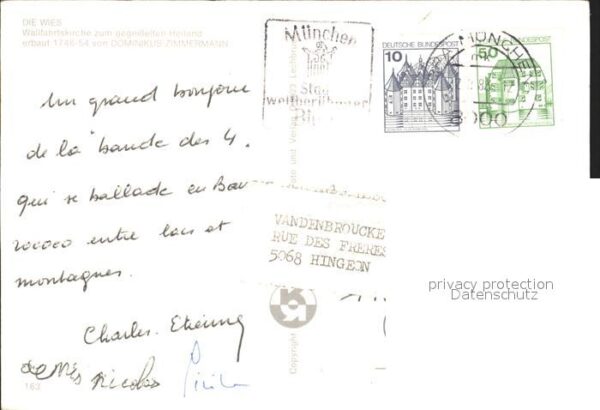 DIE WIES
Wallfahrtskirche zum gegeißelten Heiland
erbaut 1746-54 von DOMINIKUS ZIMMERMANN
München
Stadt
weltberühmter
Biere
DEUTSCHE BUNDESPOST
10
50
BUNDESPOST
MÜNCHEN
8000
Un grand bonjour
de la "bande des 4"
qui se ballade en
rococo entre lacs et
montagnes.
VANDENBROUCKE
RUE DES FRERES
5068 HINGEON
Charles-Etienne
Nicolas
163
Foto und Verlag
Copyright
privacy protection
Datenschutz